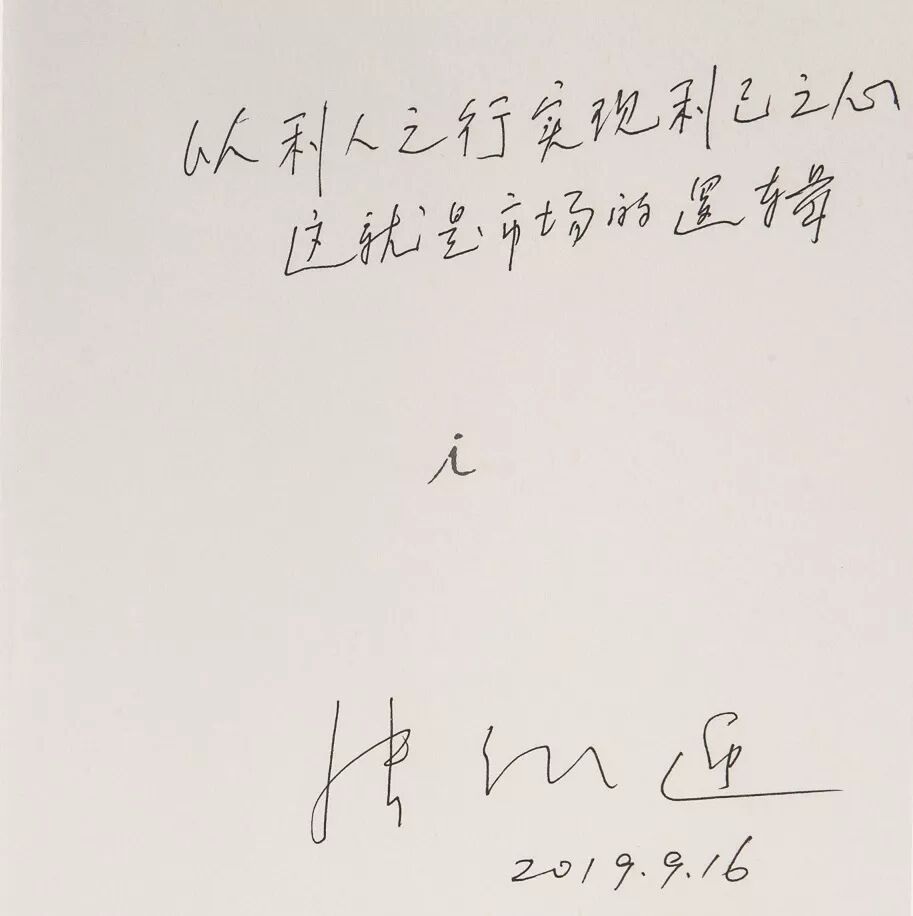 以利人之行实现利己之心
这就是市场的逻辑
i
张维迎
2019.9.16